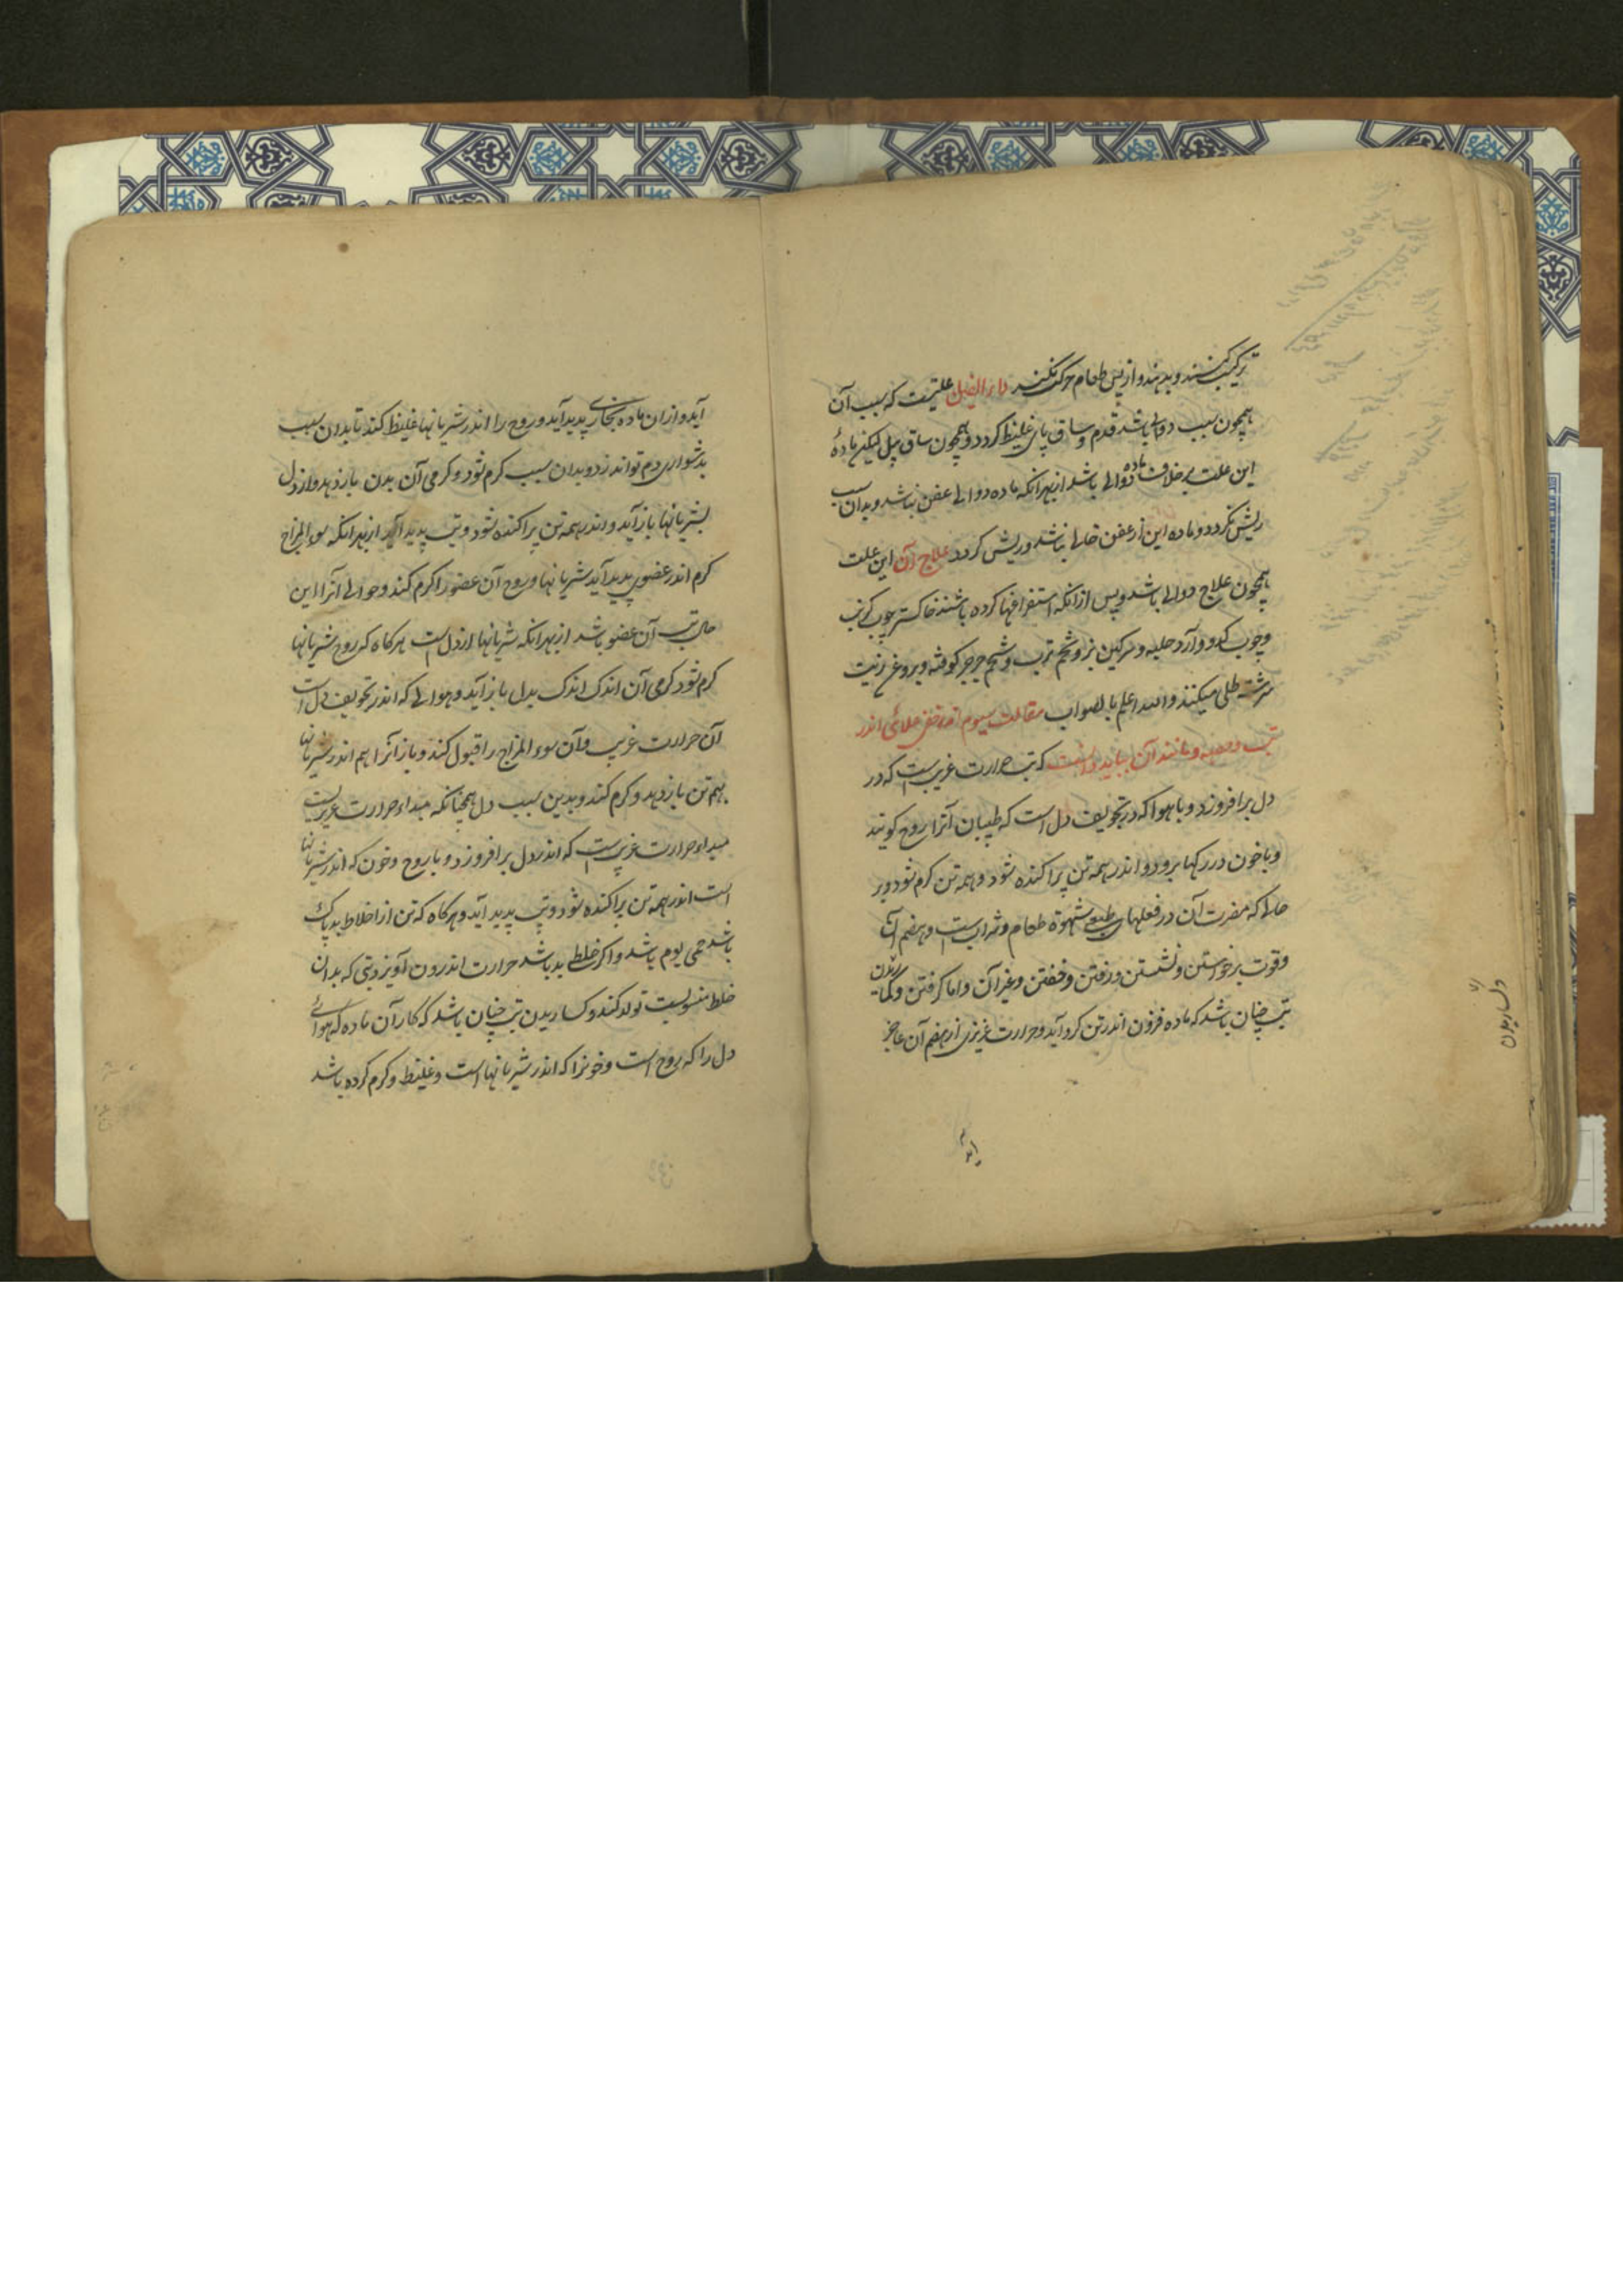 ترکیب کنند و بدهند و از پس طعام حرکت نکنند داء الفیل علتیست که سبب آن
همچون سبب دوالی باشد قدم و ساق پای غلیظ کردد و همچون ساق پیل لیکن مادهٔ
این علت بر خلاف ماده دوالی باشد از بهر آنکه ماده دوالی عفن نباشد و بدان سبب
ریش نکردد و ماده این از عفن خالی نباشد و ریش کردد علاج آن این علت
همچون علاج دوالی باشد و پس از آنکه استفراغها کرده باشند خاکستر چوب کرنب
و چوب کدو و آرد حلبه و سرکین بز و تخم ترب و تخم جرجر کوفته و بروغن زیت
سرشته طلی میکنند والله اعلم بالصواب مقالت سیوم اندر
تب و مانند آن بباید دانست که تب حرارت غریب است که در
دل برافروزد و با هوا که در تجویف دل است که طبیبان آنرا روح کویند
و با خون در رکها برود و اندر همه تن پراکنده شود و همه تن کرم شود و بر
حالی که مضرت آن در فعلهای طبیعی شهوة طعام و شراب است و هضم آن
و قوت برخواستن و نشستن و رفتن و خفتن و غیر آن و اما کرفتن و کساریدن
تب چنان باشد که ماده فزون اندر تن کرد آید و حرارت غریزی از هضم آن عاجز
آید و از ان ماده بخاری پدید آید و روح را اندر شریانها غلیظ کند تا بدان سبب
بدشواری دم تواند زد و بدان سبب کرم شود و کرمی آن بدن باز دهد و از دل
بشریانها باز آید و اندر همه تن پراکنده شود و تب پدید آید از بهر آنکه سوء المزاج
کرم اندر عضوی پدید آید شریانها و روح آن عضو را کرم کند و حوالی آنرا این
حال تب آن عضو باشد از بهر آنکه شریانها از دل است هر کاه که روح شریانها
کرم شود کرمی آن اندک اندک بدل باز آید و هوائی که اندر تجویف دل است
آن حرارت غریب و آن سوء المزاج را قبول کند و باز آنرا هم اندر شریانها
بهم تن باز دهد و کرم کند و بدین سبب دل همچنانکه مبداء حرارت غریزیست
مبداء حرارت غریب است که اندر دل برافروزد و با روح و خون که اندر شریانها
است اندر همه تن پراکنده شود و تب پدید آید و هر کاه که تن از اخلاط بد پاک
باشد حمی یوم باشد و اکر خلطی بد باشد حرارت اندرون آویزد و تبی که بدان
خلط منسوبست تولد کند و کساریدن تب چنان باشد که کار آن ماده که هوائی
دل را که روح است و خونرا که اندر شریانها است و غلیظ و کرم کرده باشد